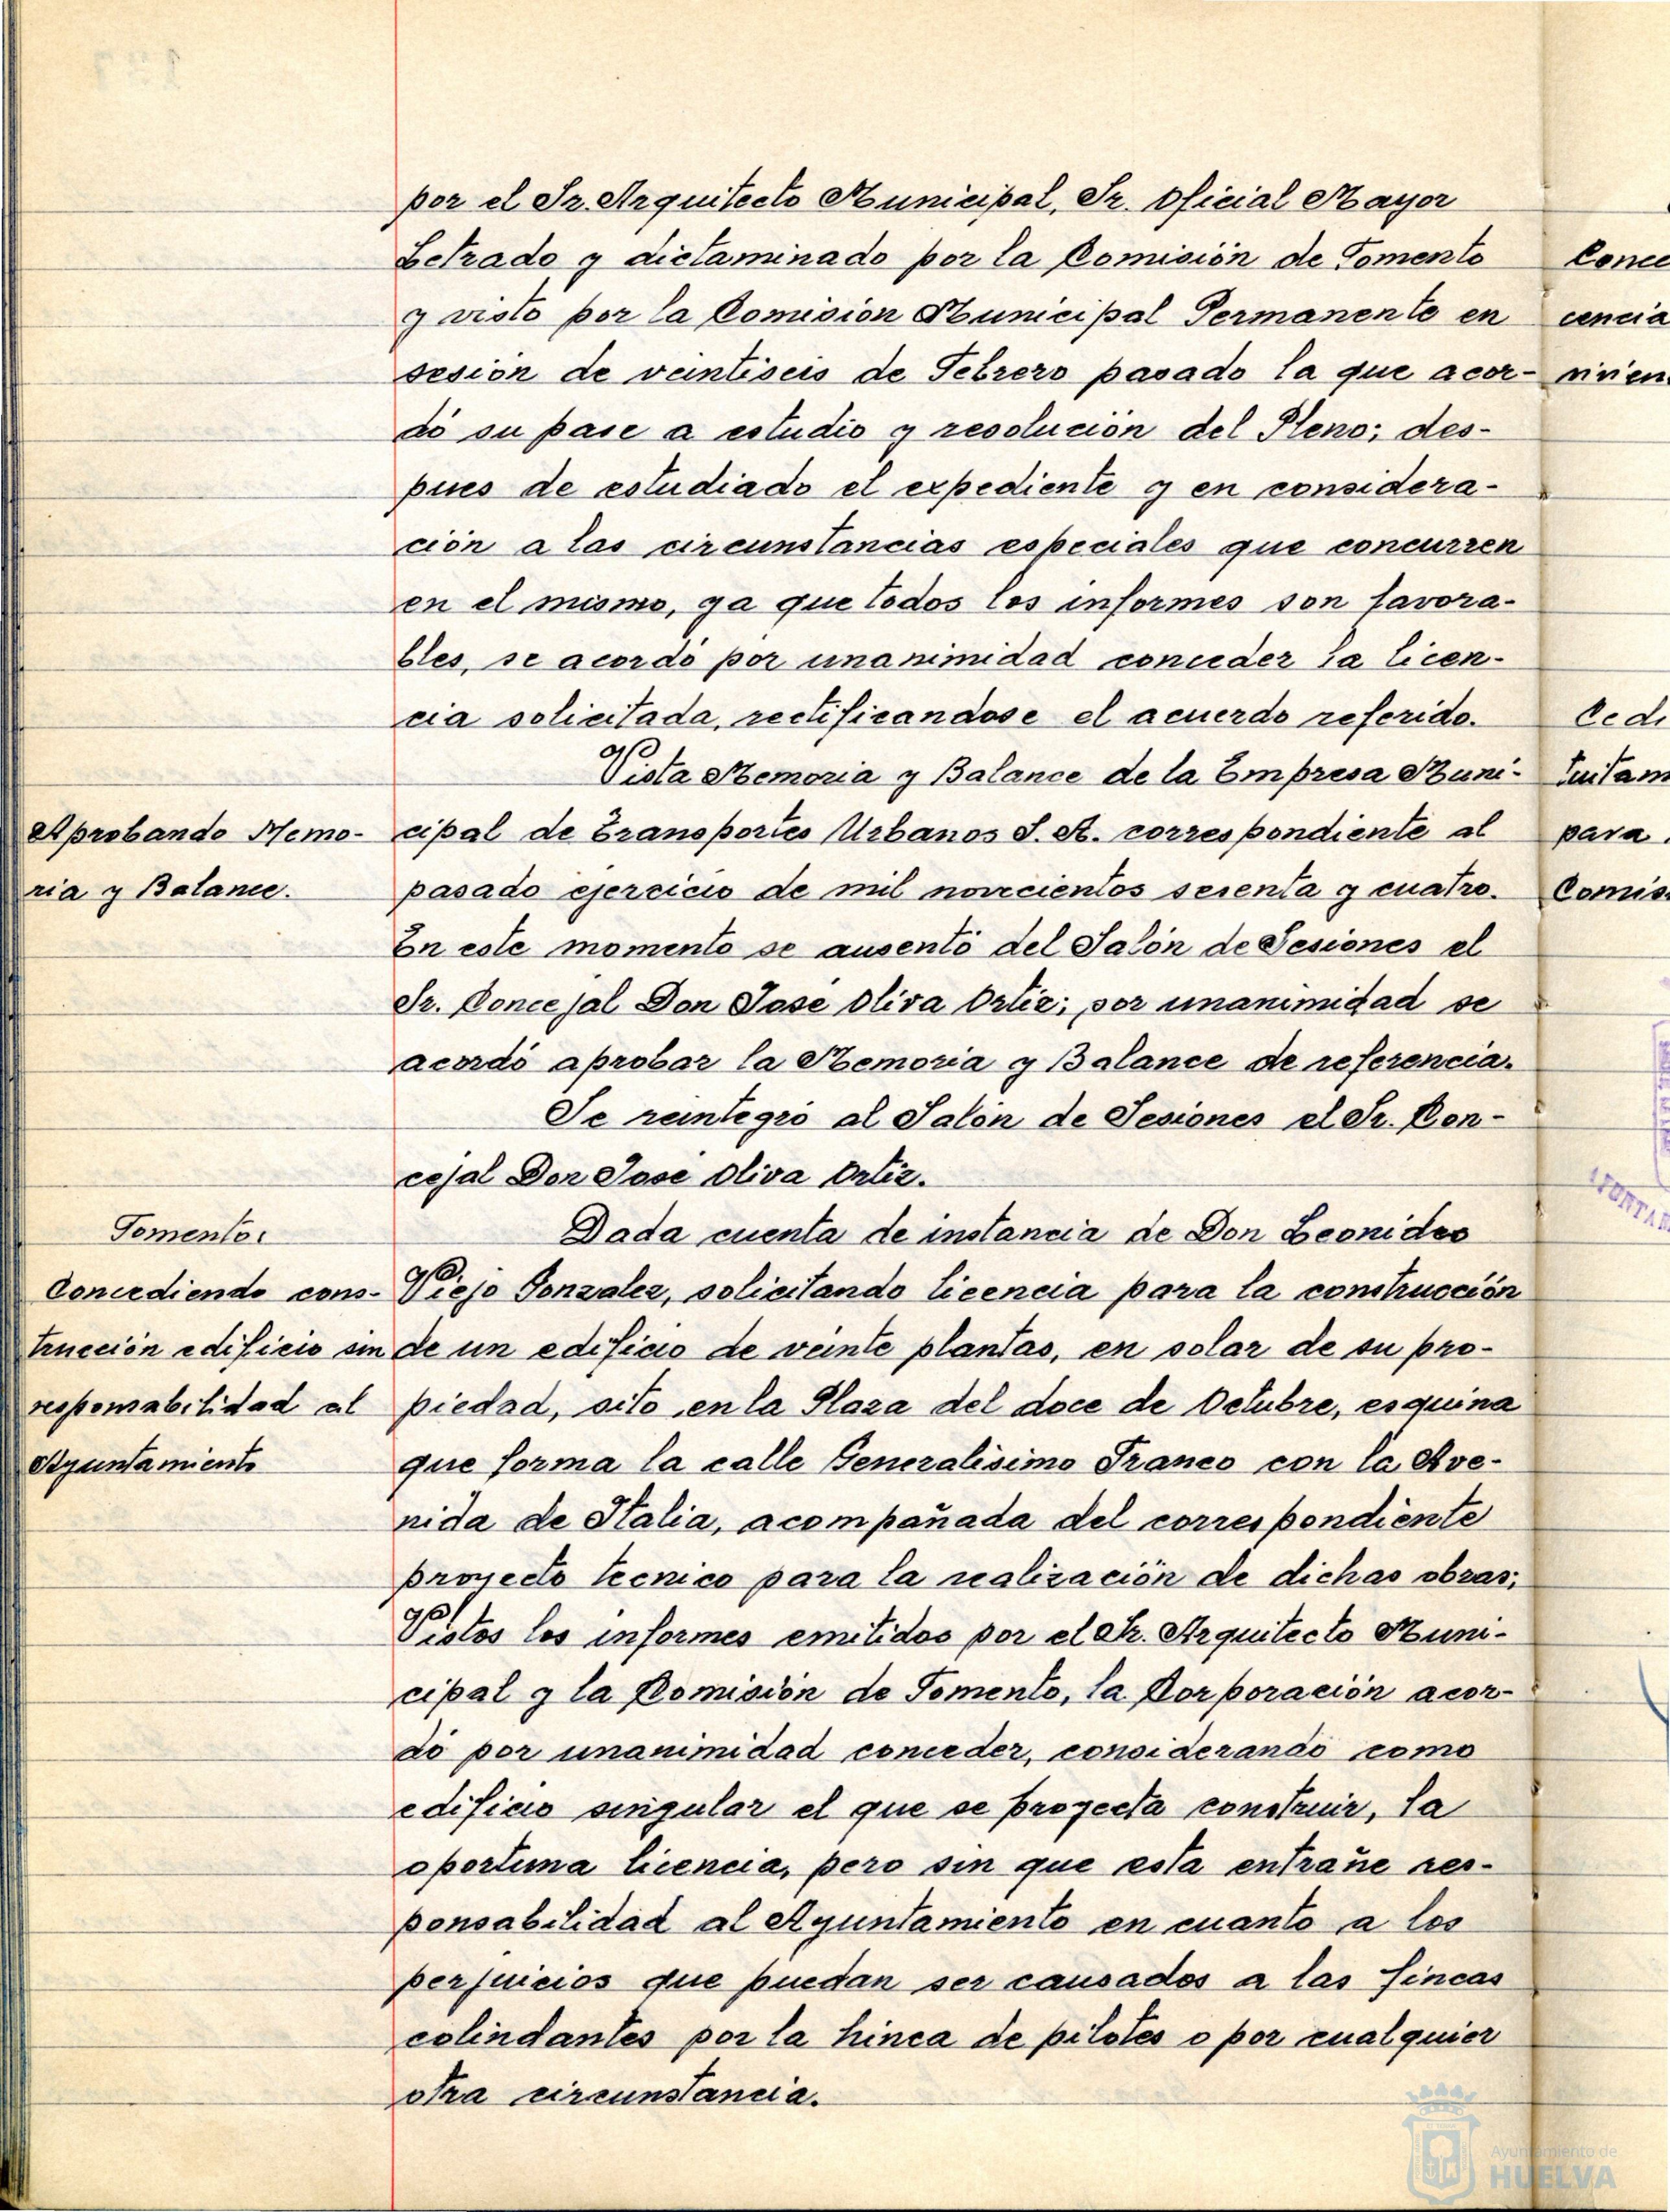 por el Sr. Arquitecto Municipal, Sr. Oficial Mayor
Letrado y dictaminado por la Comisión de Fomento
y visto por la Comisión Municipal Permanente en
sesión de veintiseis de Febrero pasado la que acor-
dó su pase a estudio y resolución del Pleno; des-
pues de estudiado el expediente y en considera-
ción a las circunstancias especiales que concurren
en el mismo, ya que todos los informes son favora-
bles, se acordó por unanimidad conceder la licen-
cia solicitada, rectificandose el acuerdo referido.
Aprobando Memo-
ria y Balance.
Vista Memoria y Balance de la Empresa Muni-
cipal de Transportes Urbanos S. A. correspondiente al
pasado ejercicio de mil novecientos sesenta y cuatro.
En este momento se ausentó del Salón de Sesiones el
Sr. Concejal Don Jose Oliva Ortiz; por unanimidad se
acordó aprobar la Memoria y Balance de referencia.
Se reintegró al Salón de Sesiones el Sr. Con-
cejal Don Jose Oliva Ortiz.
Fomento:
Concediendo cons-
trucción edificio sin
responsabilidad al
Ayuntamiento
Dada cuenta de instancia de Don Leonides
Viejo Gonzalez, solicitando licencia para la construcción
de un edificio de veinte plantas, en solar de su pro-
piedad, sito en la Plaza del doce de Octubre, esquina
que forma la calle Generalisimo Franco con la Ave-
nida de Italia, acompañada del correspondiente
proyecto tecnico para la realización de dichas obras;
Vistos los informes emitidos por el Sr. Arquitecto Muni-
cipal y la Comisión de Fomento, la Corporación acor-
dó por unanimidad conceder, considerando como
edificio singular el que se proyecta construir, la
oportuna licencia, pero sin que esta entrañe res-
ponsabilidad al Ayuntamiento en cuanto a los
perjuicios que puedan ser causados a las fincas
colindantes por la hinca de pilotes o por cualquier
otra circunstancia.
Conce
cencia
vivien
Cedi
tuitam
para
Comis
Ayuntamiento de
HUELVA